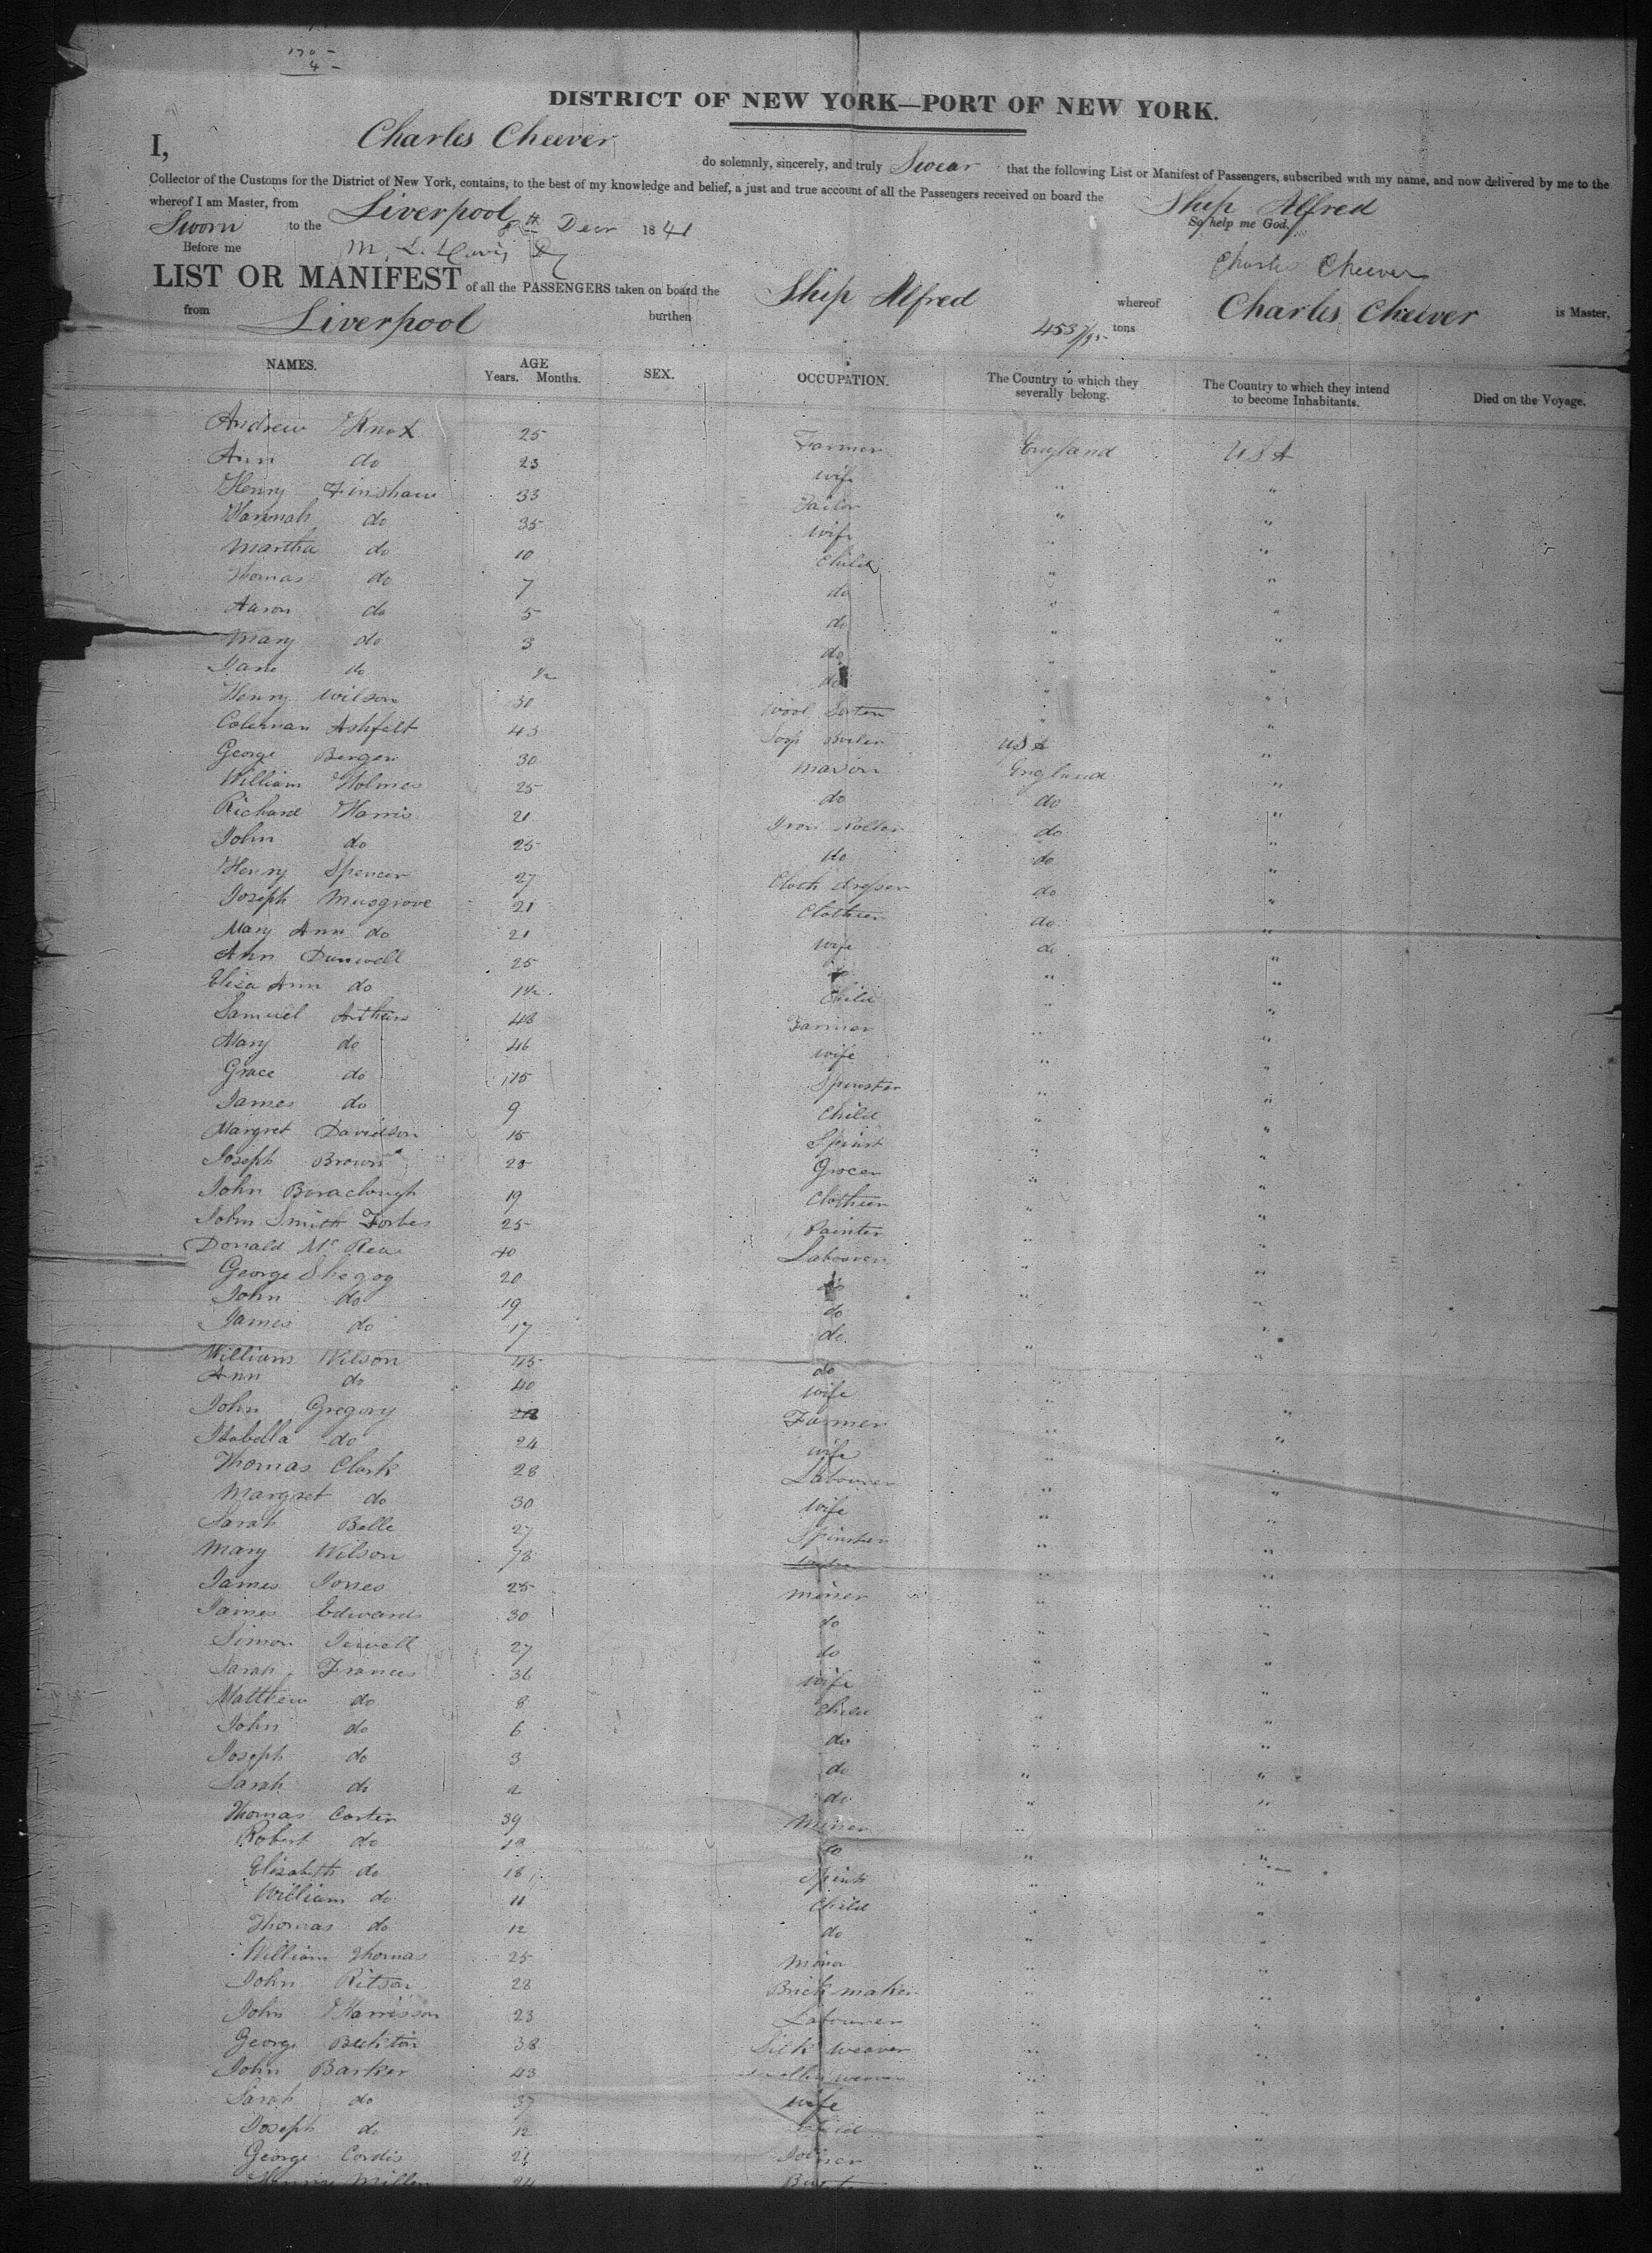 170 -
4 -
DISTRICT OF NEW YORK—PORT OF NEW YORK.
I, Charles Cheever do solemnly, sincerely, and truly Swear that the following List or Manifest of Passengers, subscribed with my name, and now delivered by me to the
Collector of the Customs for the District of New York, contains, to the best of my knowledge and belief, a just and true account of all the Passengers received on board the Ship Alfred
whereof I am Master, from Liverpool So help me God.
Sworn to the 8th Decr 1841
Before me Charles Cheever
LIST OR MANIFEST of all the PASSENGERS taken on board the Ship Alfred whereof Charles Cheever is Master,
from Liverpool burthen 453 7/95 tons
NAMES. AGE Years. Months. SEX. OCCUPATION. The Country to which they severally belong. The Country to which they intend to become Inhabitants. Died on the Voyage.
Andrew Knox 25 Farmer England USA
Ann do 23 wife " "
Henry Finshaw 33 Tailor " "
Hannah do 35 wife " "
Martha do 10 Child " "
Thomas do 7 do " "
Aaron do 5 do " "
Mary do 3 do " "
Jane do 1/2 do " "
Henry Wilson 30 Wool " "
Coleman Ashfelt 43 Soap Boiler USA "
George Bergen 30 Mason England "
William Holmes 25 do do "
Richard Harris 21 Iron Roller do "
John do 25 do do "
Henry Spencer 27 Cloth dresser do "
Joseph Musgrove 21 Clothier do "
Mary Ann do 21 wife do "
Ann Dunwell 25 do " "
Eliza Ann do 1 1/2 Child " "
Samuel Arthurs 48 Farmer " "
Mary do 46 wife " "
Grace do 15 Spinster " "
James do 9 Child " "
Margret Davidson 15 Spinst " "
Joseph Brown 28 Grocer " "
John Beraclough 19 Clothier " "
John Smith Forbes 25 Painter " "
Donald Mc Rea 40 Labourer " "
George Shegog 20 do " "
John do 19 do " "
James do 17 do " "
William Wilson 45 do " "
Ann do 40 wife " "
John Gregory 28 Farmer " "
Isabella do 24 wife " "
Thomas Clark 28 Labourer " "
Margret do 30 wife " "
Sarah Belle 27 Spinster " "
Mary Wilson 78 " "
James Jones 25 Miner " "
James Edwards 30 do " "
Simon Jewell 27 do " "
Sarah Frances 36 wife " "
Matthew do 8 Child " "
John do 6 do " "
Joseph do 3 do " "
Sarah do do " "
Thomas Carter 39 Miner " "
Robert do 19 do " "
Elizabeth do 18 Spinst " "
William do 11 Child " "
Thomas do 12 do " "
William Thomas 25 Miner " "
John Ritson 28 Brick maker " "
John Harrisson 23 Labourer " "
George Beckton 38 Silk weaver " "
John Barker 43 weaver " "
Sarah do 37 wife " "
Joseph do 12 Child " "
George Cordis 21 Joiner " "
Henry Miller 24